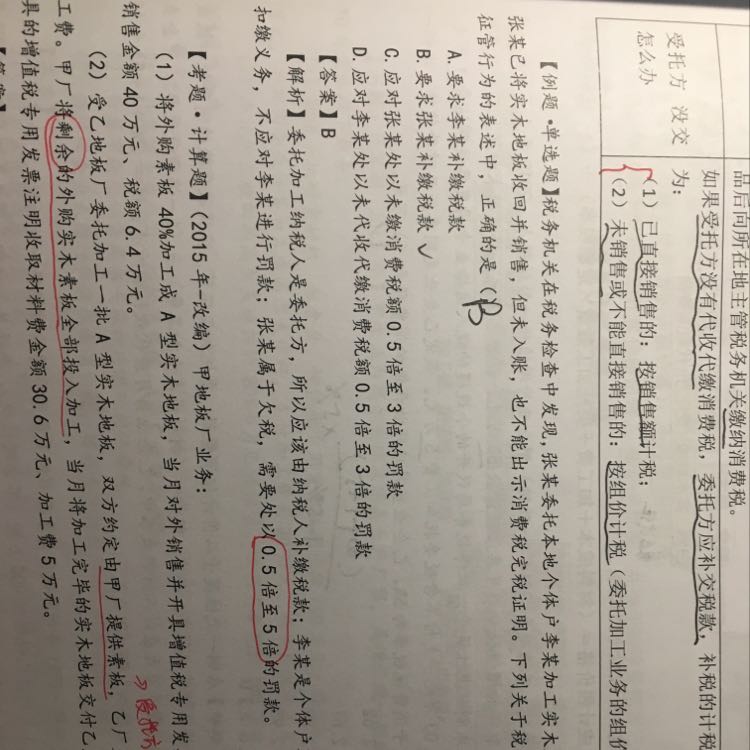 品后向所在地主管税务机关缴纳消费税。
如果受托方没有代收代缴消费税，委托方应补交税款，补税的计税
为：
受托方 没交
怎么办
（1）已直接销售的：按销售额计税；
（2）未销售或不能直接销售的：按组价计税（委托加工业务的组价
【例题•单选题】税务机关在税务检查中发现，张某委托本地个体户李某加工实木
张某已将实木地板收回并销售，但未入账，也不能出示消费税完税证明。下列关于税
征管行为的表述中，正确的是（B
A.要求李某补缴税款
B.要求张某补缴税款 ✓
C.应对张某处以未缴消费税额0.5倍至3倍的罚款
D.应对李某处以未代收代缴消费税额0.5倍至3倍的罚款
【答案】B
【解析】委托加工纳税人是委托方，所以应该由纳税人补缴税款；李某是个体户
扣缴义务，不应对李某进行罚款；张某属于欠税，需要处以0.5倍至5倍的罚款。
【考题·计算题】（2015年-改编）甲地板厂业务：
（1）将外购素板40%加工成A型实木地板，当月对外销售并开具增值税专用发
销售金额40万元、税额6.4万元。
（2）受乙地板厂委托加工一批A型实木地板，双方约定由甲厂提供素板，乙厂
⇒受托方
工费。甲厂将剩余的外购实木素板全部投入加工，当月将加工完毕的实木地板交付乙
具的增值税专用发票注明收取材料费金额30.6万元、加工费5万元。